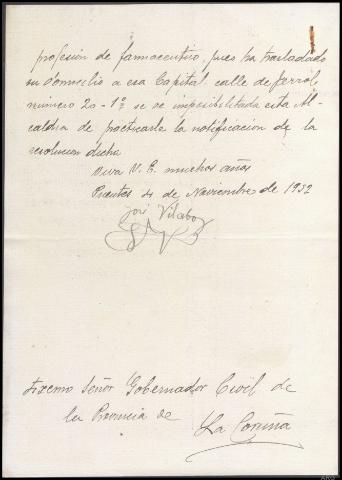 profesión de farmaceutico, pues ha trasladado
su domicilio a esa Capital calle de Ferrol,
numero 20-1º se ve imposibilitada esta Al-
caldia de practicarle la notificacion de la
resolucion dicha
Viva V. E. muchos años
Puentes 4 de Noviembre de 1932
José Vilaboy
Excmo Señor Gobernador Civil de
la Provincia de
La Coruña